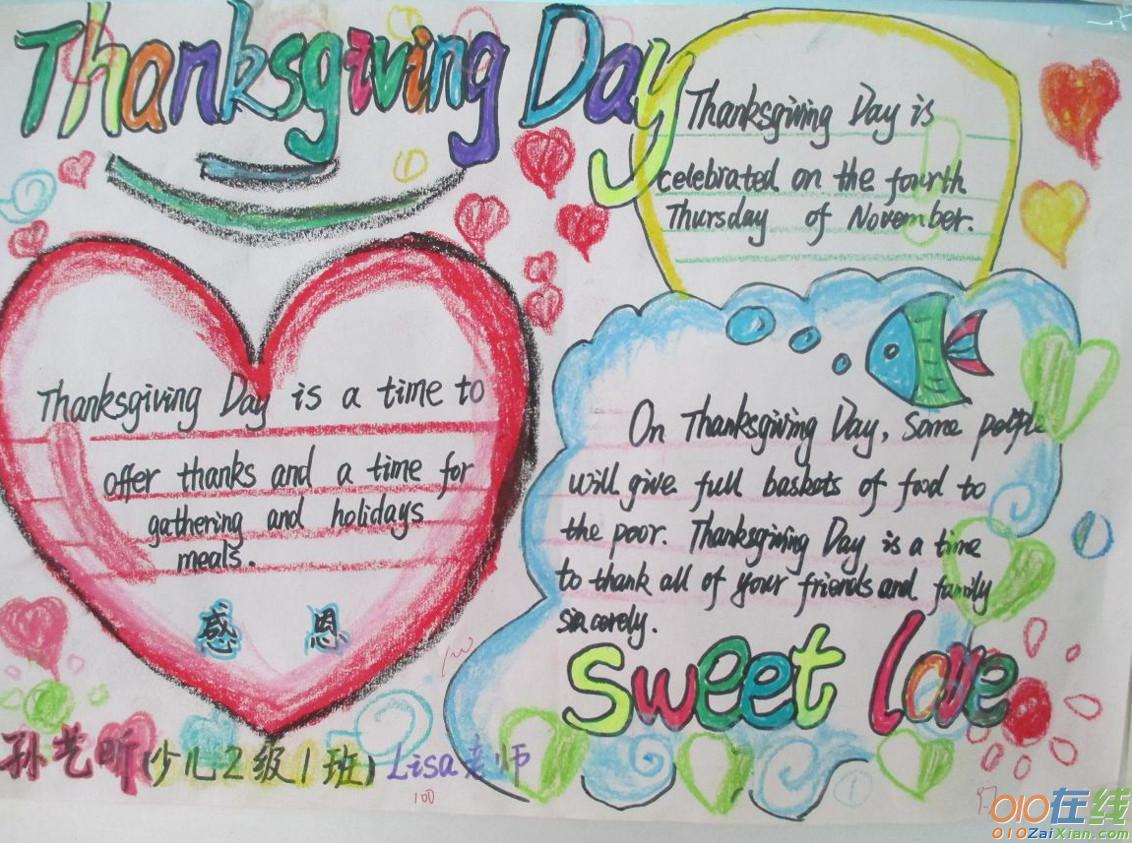 Thanksgiving Day
Thanksgiving Day is
celebrated on the fourth
Thursday of November.
Thanksgiving Day is a time to
offer thanks and a time for
gathering and holidays
meals.
感 恩
On Thanksgiving Day, Some people
will give full baskets of food to
the poor. Thanksgiving Day is a time
to thank all of your friends and family
sincerely.
sweet love
孙艺昕(少儿2级1班) Lisa老师
100
010在线
010ZaiXian.com